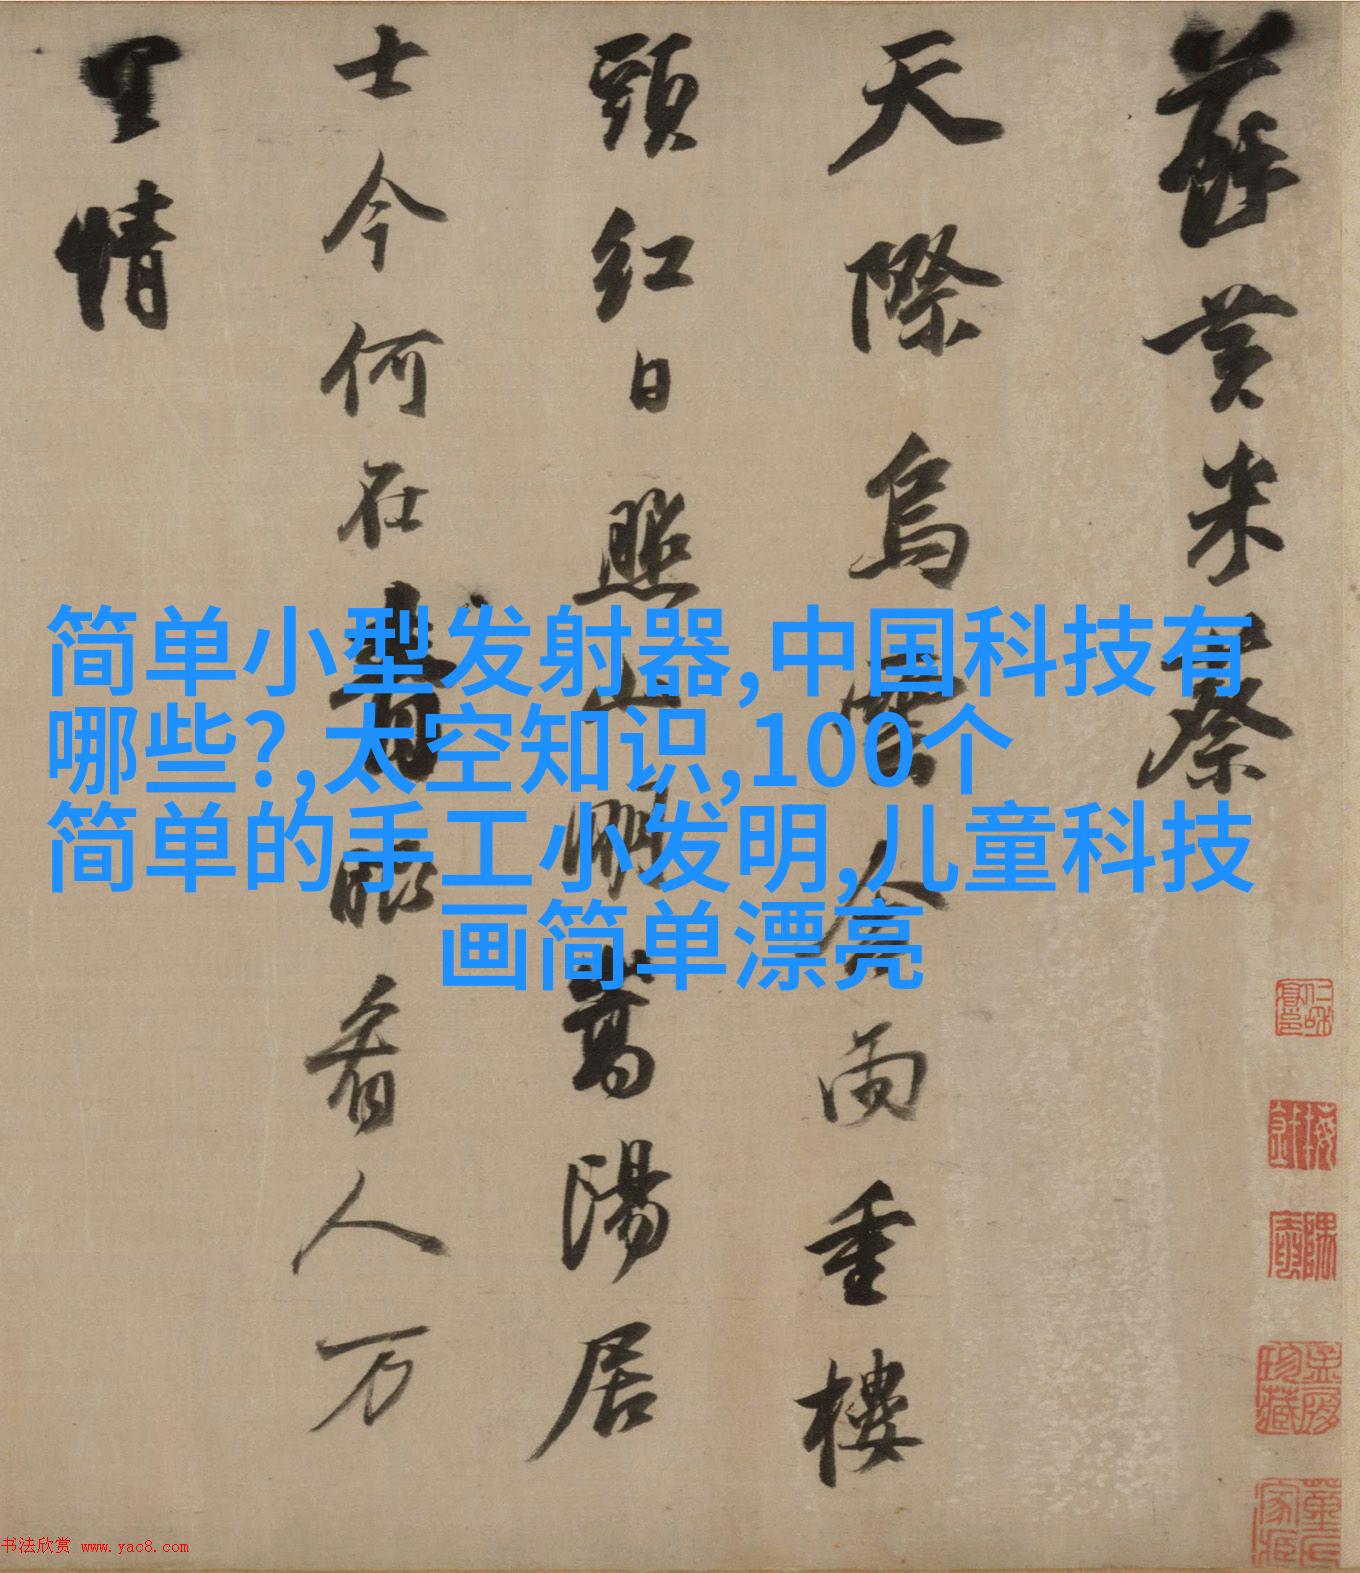 蘇黄米蔡
天際烏雲含雨重樓
頭紅日照山明嵩陽居
士今何在青眼看人万
里情
简单小型发射器,中国科技有
哪些?,太空知识,100个
简单的手工小发明,儿童科技
画简单漂亮
书法欣赏 www.yac8.com